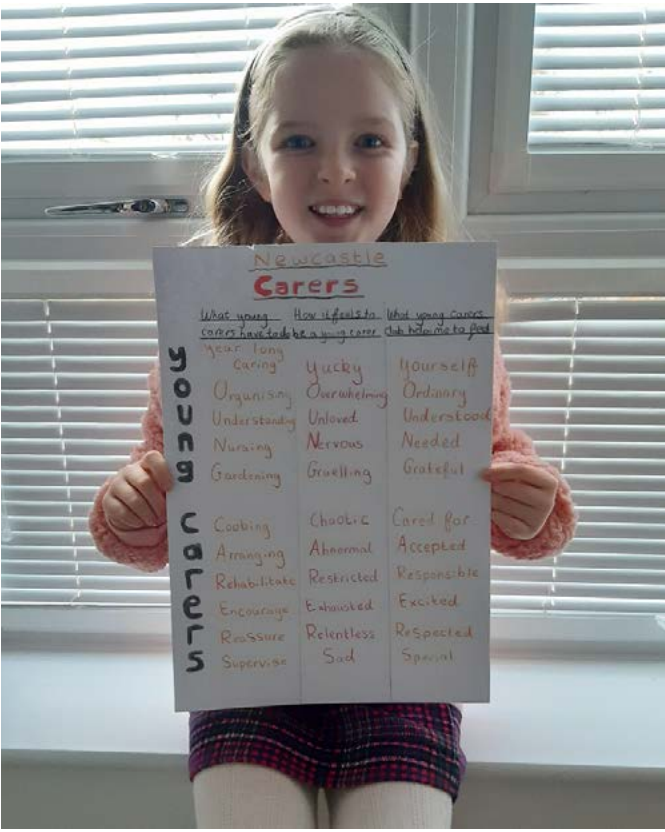 Newcastle
Carers
What young How it feels to What young carers
carers have to do be a young carer club helps me to feel
young
year long
caring yucky yourself
Organising Overwhelming Ordinary
Understanding Unloved Understood
Nursing Nervous Needed
Gardening Gruelling Grateful
carers
Cooking Chaotic Cared for
Arranging Abnormal Accepted
Rehabilitate Restricted Responsible
Encourage Exhausted Excited
Reassure Relentless Respected
Supervise Sad Special